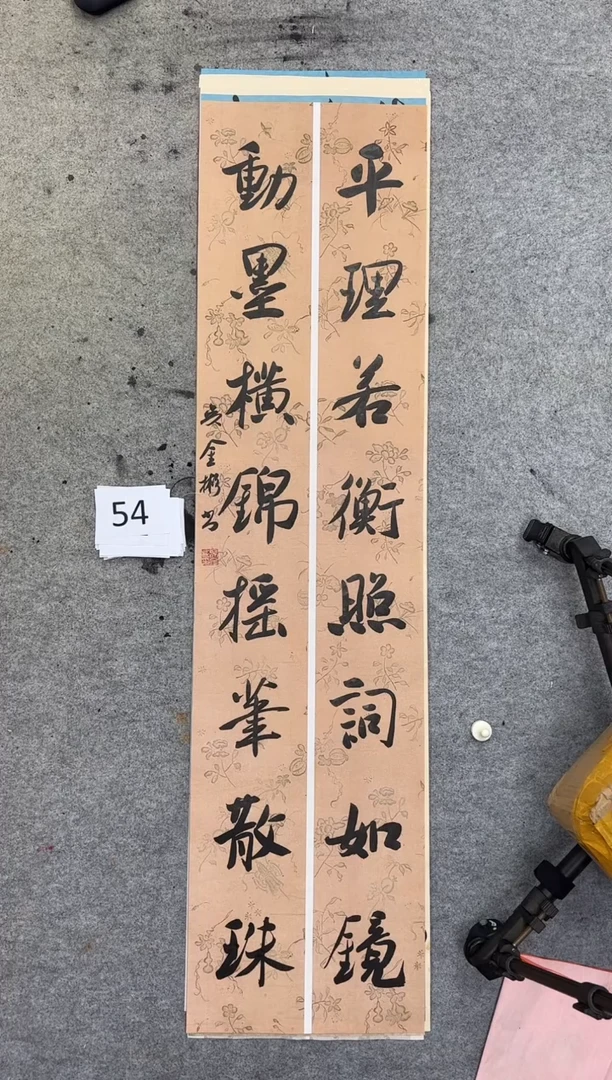 平理若衡照詞如鏡
動墨橫錦搖筆散珠
吳金彬書
54